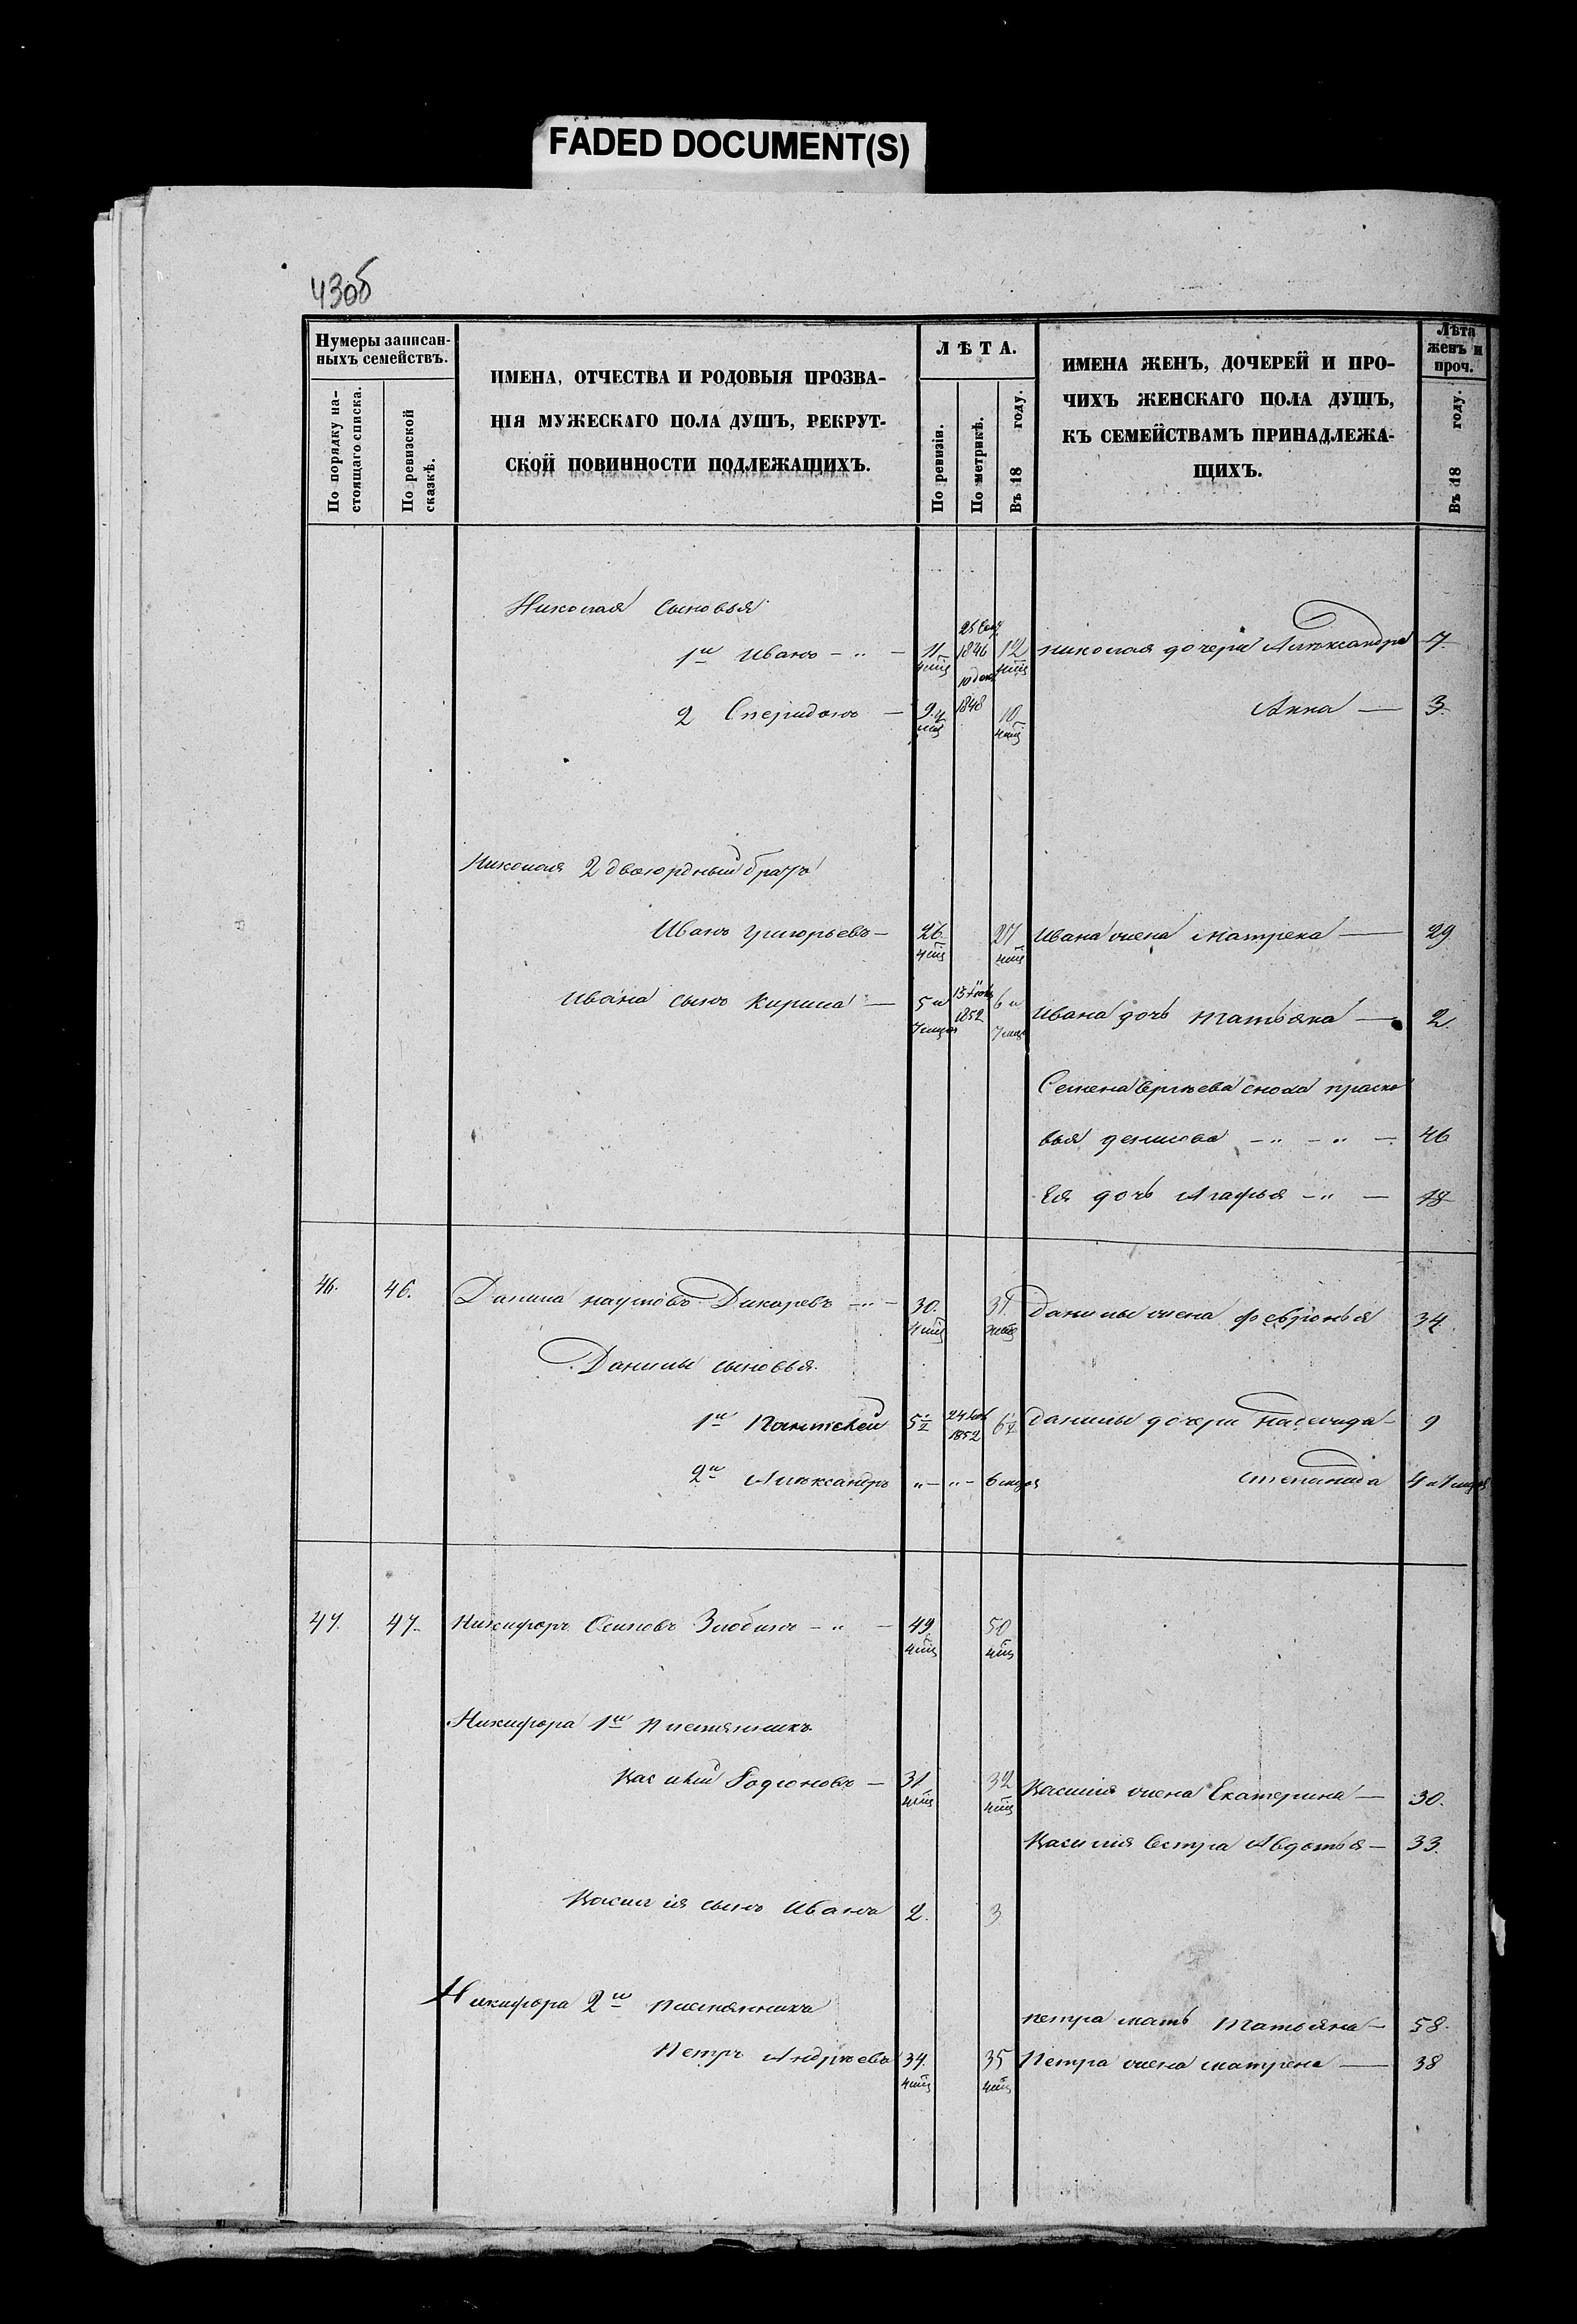 FADED DOCUMENT(S)
43об
Нумеры записан-
ныхъ семействъ.
По порядку на-
стоящаго списка.
По ревизской
сказкѣ.
ИМЕНА, ОТЧЕСТВА И РОДОВЫЯ ПРОЗВА-
НІЯ МУЖЕСКАГО ПОЛА ДУШЪ, РЕКРУТ-
СКОЙ ПОВИННОСТИ ПОДЛЕЖАЩИХЪ.
ЛѢТА.
По ревизіи.
По метрикѣ.
Въ 18 году.
ИМЕНА ЖЕНЪ, ДОЧЕРЕЙ И ПРО-
ЧИХЪ ЖЕНСКАГО ПОЛА ДУШЪ,
КЪ СЕМЕЙСТВАМЪ ПРИНАДЛЕЖА-
ЩИХЪ.
Лѣта
женъ и
проч.
Въ 18 году.
Николая Сыновья
1й Иванъ 11 1846 12 николая дочери Александра 7.
2 Спиридонъ 9 1848 10 Анна 3.
Николая 2 двоюрдный братъ
Иванъ григорьевъ 26 27 Ивана жена Матрена 29
Ивана сынъ Кирила 5 и 1852 6 и Ивана дочь татьяна 2.
Семена сноха праско
вья денисова 46
Ея дочь Агафья 18
46. 46. Данила наумовъ Дикаревъ 30. 31. Данилы жена февронья 34.
Данилы сыновья.
1й Пантелей 5 1852 6 Данилы дочери надежда 9
2й Александръ 6 степанида 4
47. 47. Никифоръ Осиповъ Злобинъ 49 50
Никифора 1й племянникъ
Василий Родионовъ 31 32 Василия жена Екатерина 30.
Василия Сестра Авдотья 33.
Василия сынъ Иванъ 2. 3
Никифора 2й племянникъ
петра мать татьяна 58.
Петръ Андреевъ 34. 35 Петра жена матрена 38